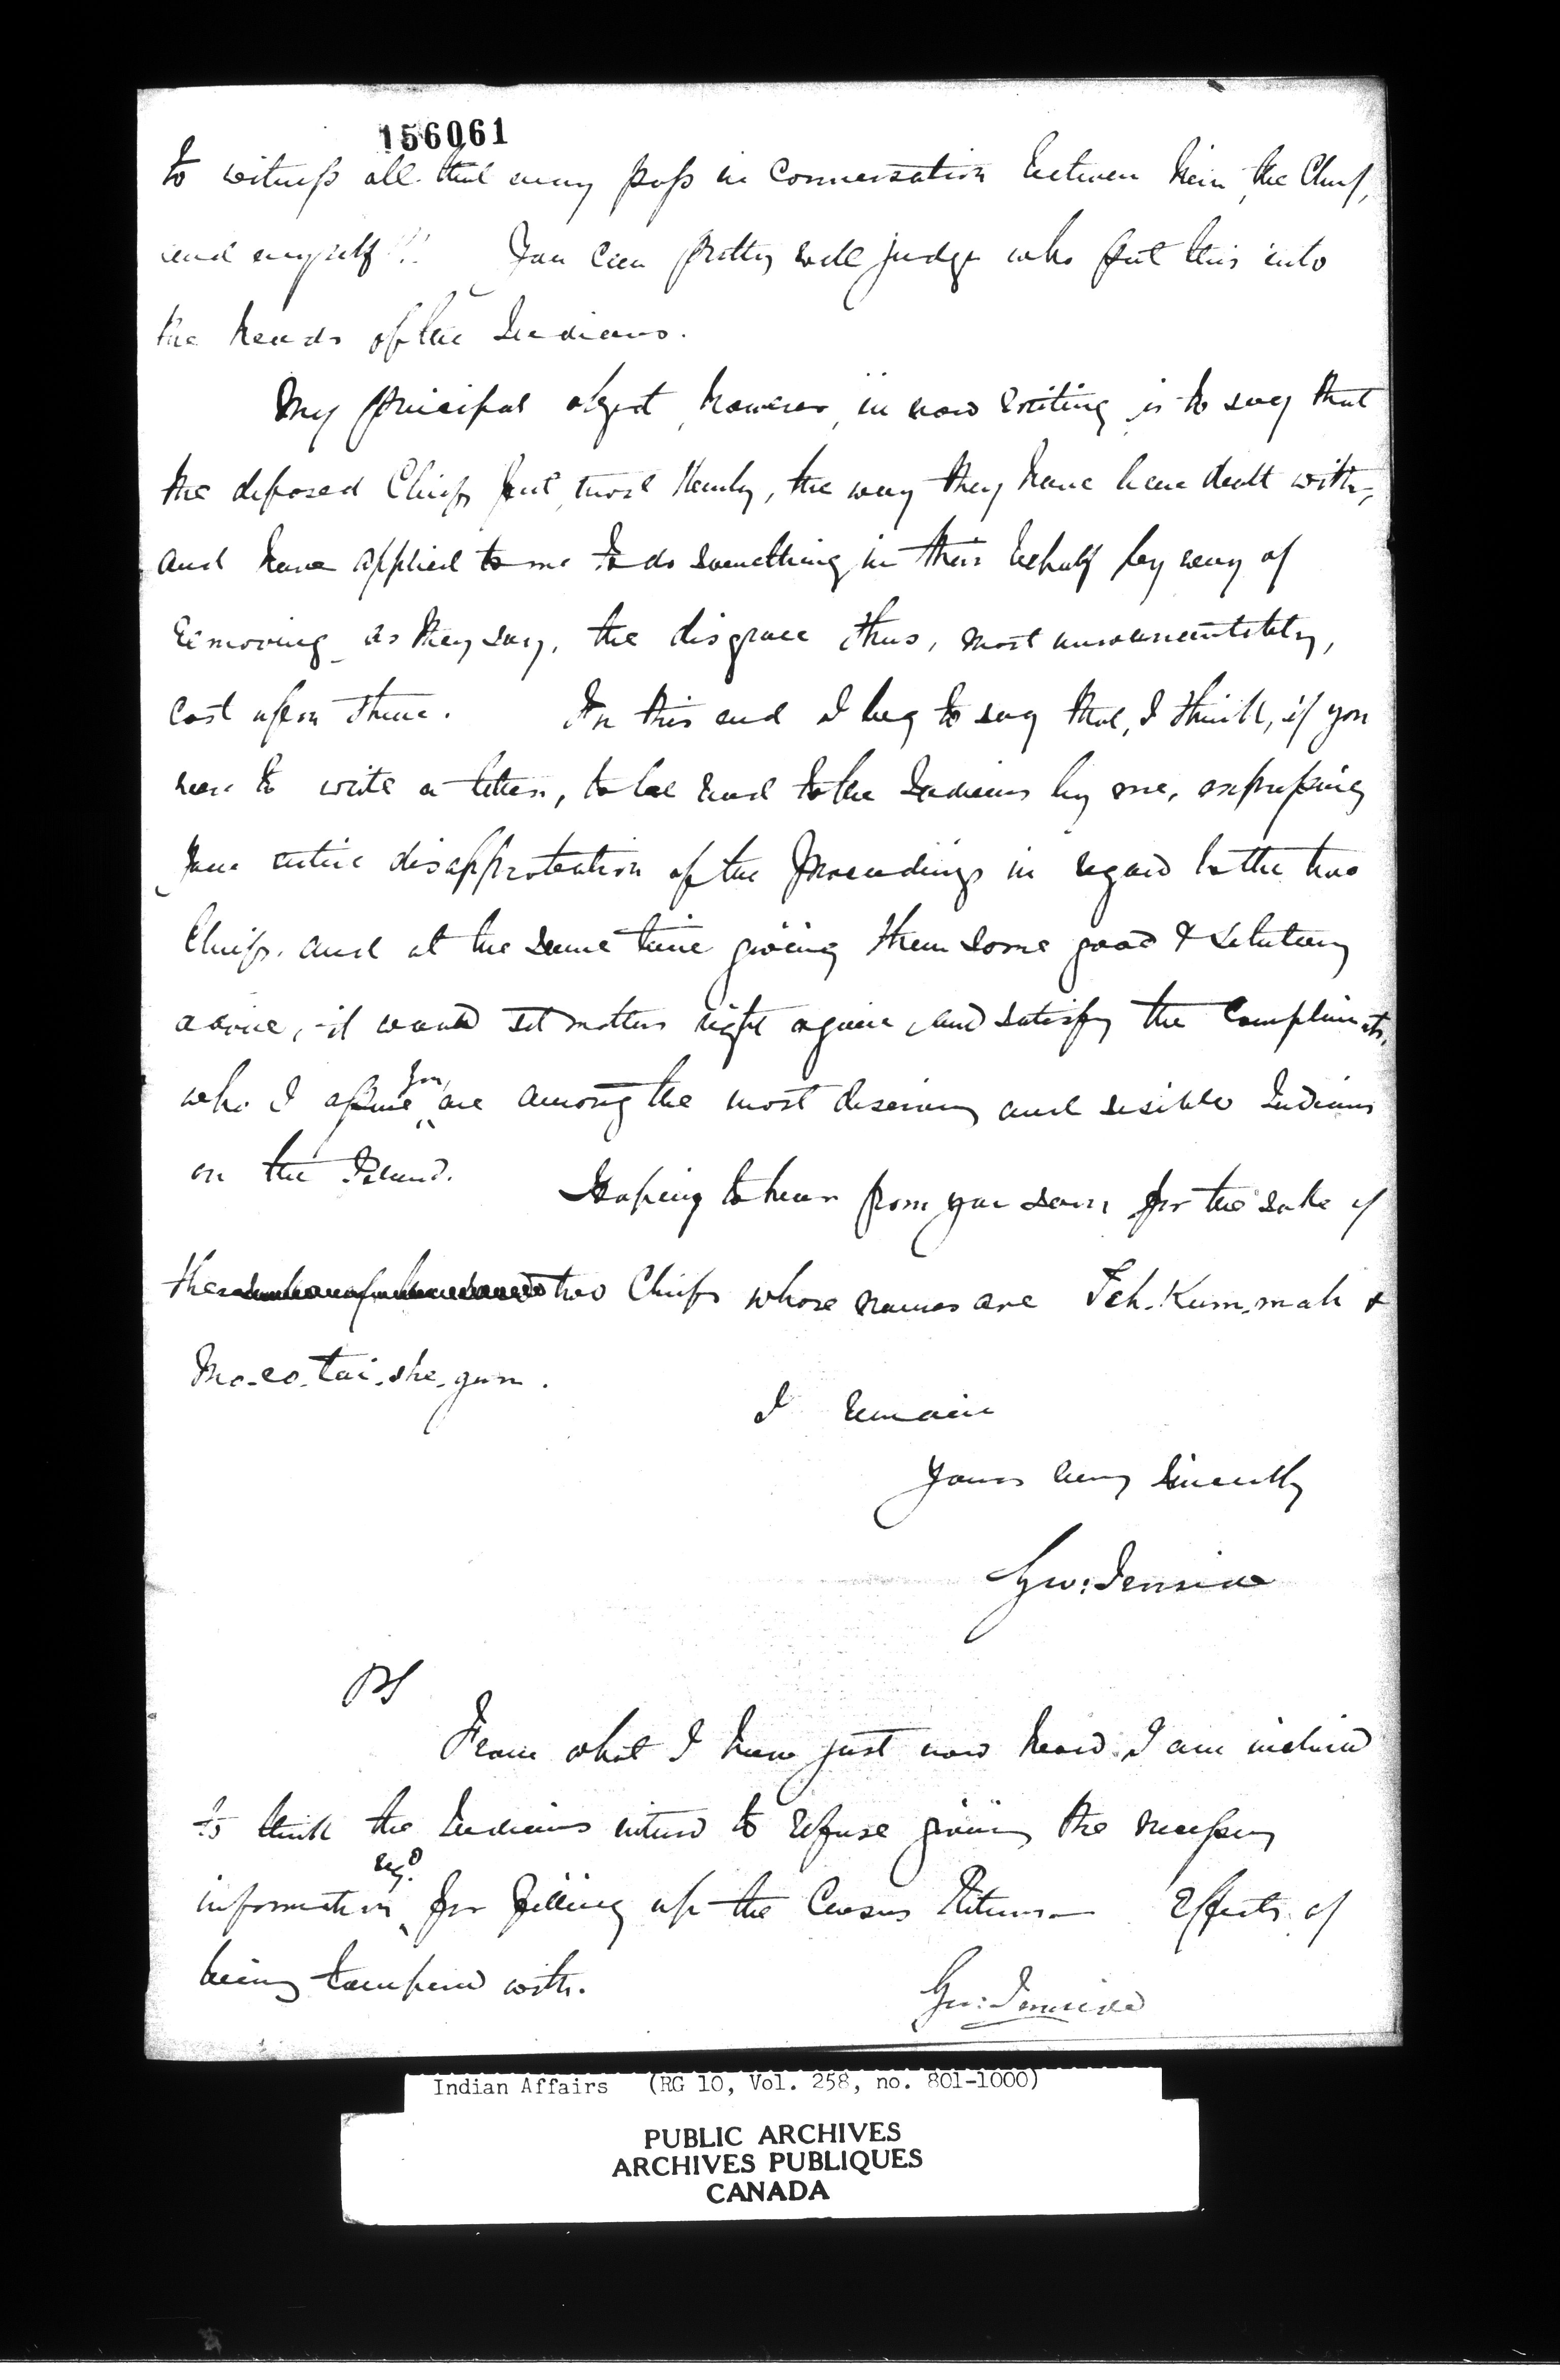 156061
to witness all that may pass in conversation between him, the Chief,
and myself!!! You can pretty well judge who put this into
the heads of the Indians.
My principal object, however, in now writing, is to say that
the deposed Chiefs feel, most keenly, the way they have been dealt with,
and have applied to me to do something in their behalf by way of
removing, as they say, the disgrace thus, most unwarrantably,
cast upon them. To this end I beg to say that, I think, if you
were to write a letter, to be read to the Indians by me, expressing
your entire disapprobation of the proceedings in regard to the two
Chiefs, and at the same time giving them some good & salutary
advice, it would set matters right again, and satisfy the complainants,
who I assure you are among the most deserving and sesible Indians
on the Island. Hoping to hear from you soon for the sake of
the two Chiefs whose names are Teh-Kum-mah &
Mo-co-tai-she-gun.
I remain
Yours very sincerely
Geo: Ironside
PS
From what I have just now heard I am inclined
to think the Indians intend to refuse giving the necessary
reqd
information for filling up the Census Returns— Effects of
being tampered with.
Geo: Ironside
Indian Affairs (RG 10, Vol. 258, no. 801-1000)
PUBLIC ARCHIVES
ARCHIVES PUBLIQUES
CANADA